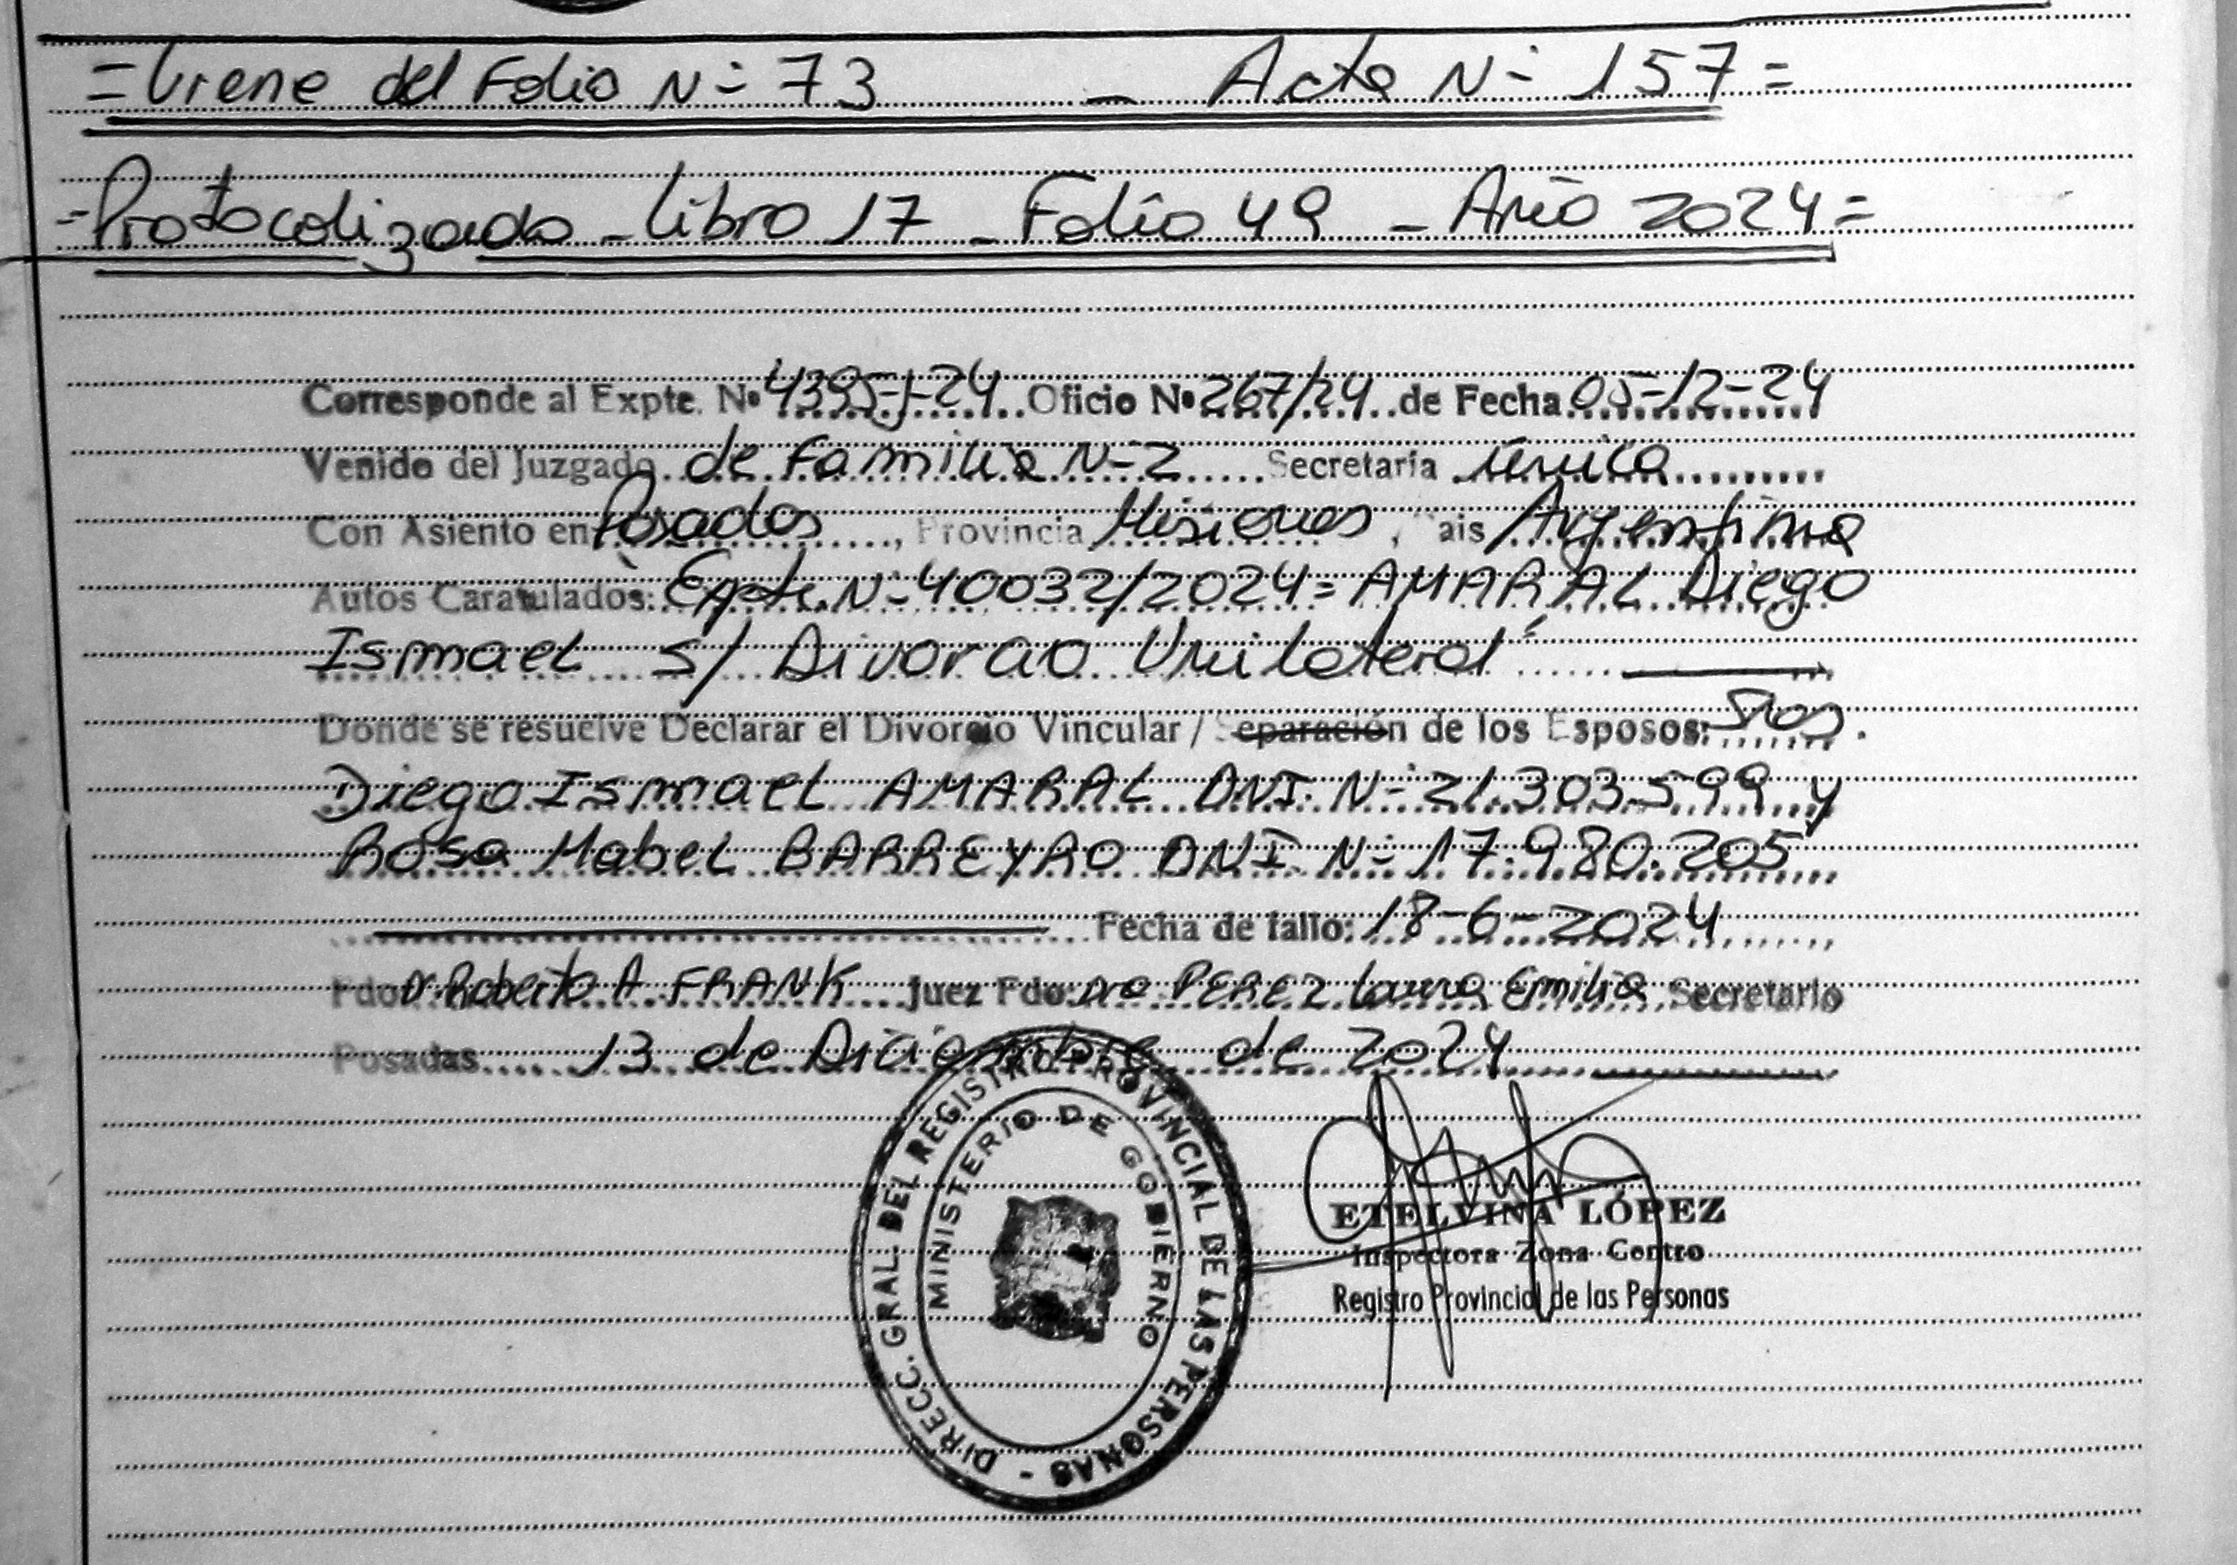 = Viene del Folio Nº 73 - Acta Nº 157 =
= Protocolizado - Libro 17 - Folio 49 - Año 2024 =
Corresponde al Expte. Nº 4395-J-24 Oficio Nº 267/24 de Fecha 05-12-24
Venido del Juzgado de Familia Nº 2 Secretaría única
Con Asiento en Posadas, Provincia Misiones, Pais Argentina
Autos Caratulados: Expte. Nº 40032/2024 = AMARAL Diego
Ismael s/ Divorcio Unilateral
Donde se resuelve Declarar el Divorcio Vincular / Separación de los Esposos: Sres.
Diego Ismael AMARAL DNI. Nº 21.303.599 y
Rosa Mabel BARREYRO DNI Nº 17.980.205
Fecha de fallo: 18-6-2024
Fdo Dr. Roberto A. FRANK Juez Fdo: Dra PEREZ Laura Emilia Secretario
Posadas 13 de Diciembre de 2024
DIRECC. GRAL. DEL REGISTRO PROVINCIAL DE LAS PERSONAS -
MINISTERIO DE GOBIERNO
ETELVINA LÓPEZ
Inspectora Zona Centro
Registro Provincial de las Personas